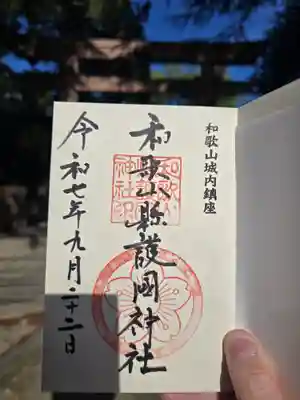 和歌山城内鎮座
和歌山縣護國神社
令和七年九月二十二日